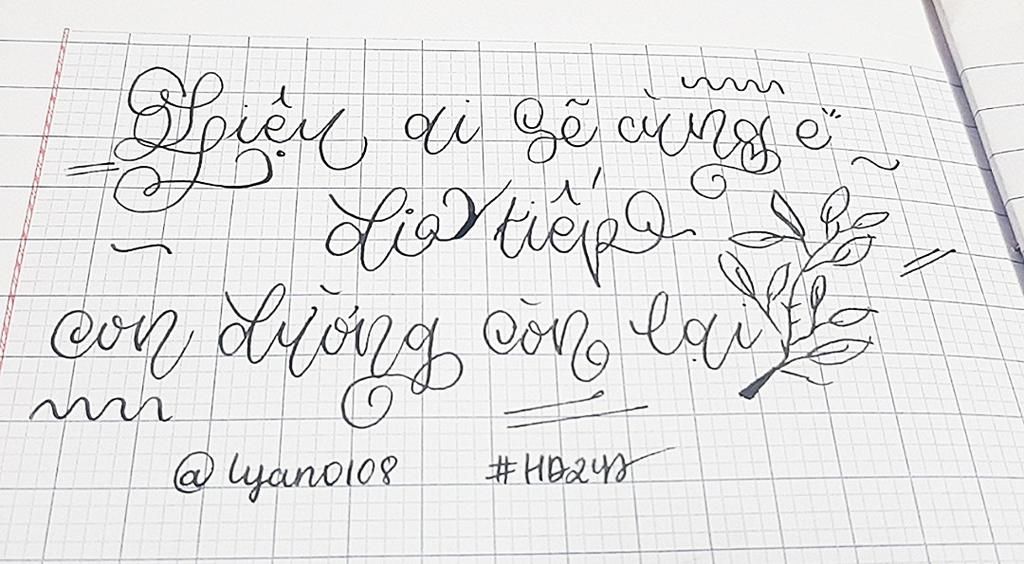 Liệu ai sẽ cùng e
đi tiếp
con đường còn lại
@lyan0108